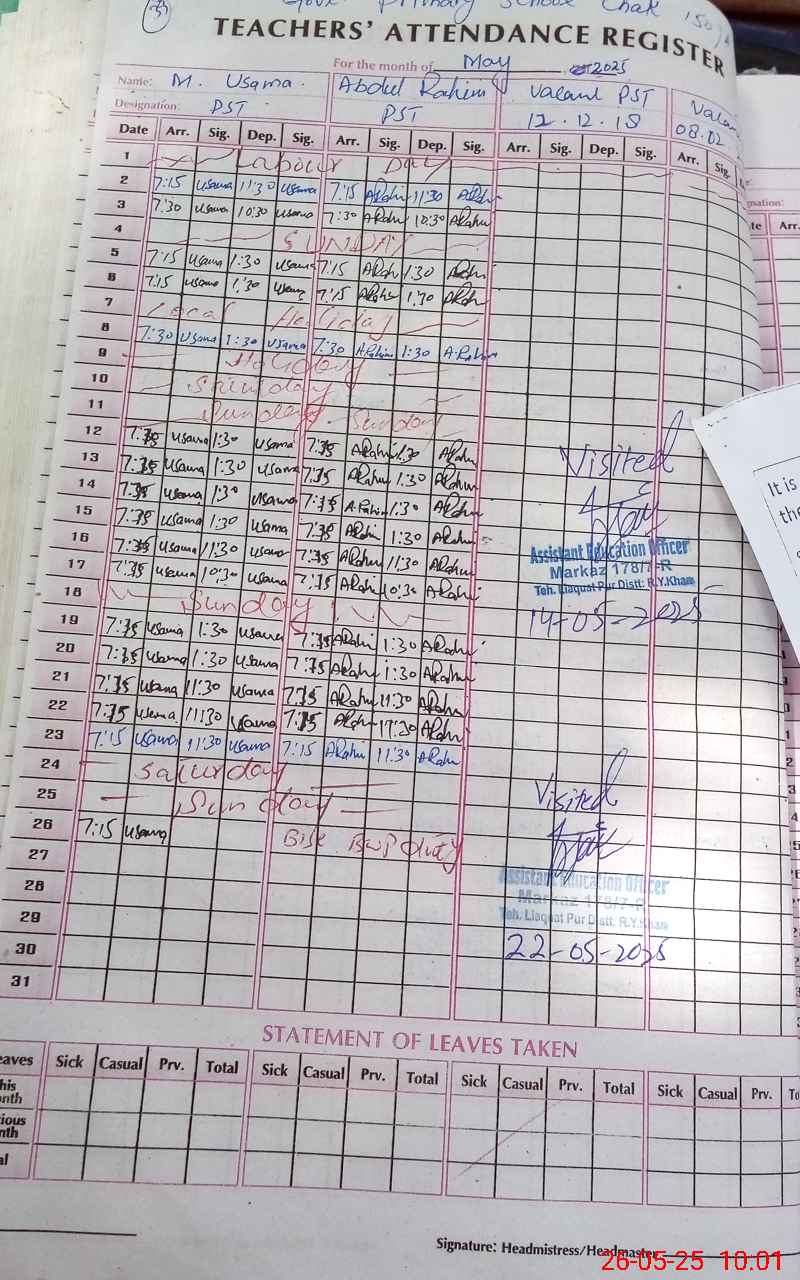 Govt Primary School Chak 150
TEACHERS' ATTENDANCE REGISTER
For the month of May 2025
Name: M. Usama. Abdul Rahim Valant PST
Designation: PST PST 12.12.18 08.02
Date Arr. Sig. Dep. Sig. Arr. Sig. Dep. Sig. Arr. Sig. Dep. Sig. Arr. Sig.
1 Labour Day
2 7:15 Usama 11:30 Usama 7:15 ARahi 11:30 ARahi
3 7:30 Usama 10:30 Usama 7:30 ARahi 10:30 ARahi
4 SUNDAY
5 7:15 Usama 1:30 Usama 7:15 ARahi 1:30 ARahi
6 7:15 Usama 1:30 Usama 7:15 ARahi ARahi
7 Local Holiday
8 7:30 Usama 1:30 Usama 7:30 A.Rahim 1:30 A.Rahim
9 Holiday
10
11 Sunday Sunday
12 Usama 1:30 Usama ARahi 1:30 ARahi
13 Usama 1:30 Usama ARahi 1:30 ARahi
14 Usama 1:30 Usama A.Rahim 1:30 ARahi
15 Usama 1:30 Usama ARahi 1:30 ARahi
16 Usama 11:30 Usama ARahi 11:30 ARahi
17 Usama 10:30 Usama ARahi 10:30 ARahi
18 Sunday
19 Usama 1:30 Usama ARahi 1:30 ARahi
20 Usama 1:30 Usama ARahi 1:30 ARahi
21 Usama 11:30 Usama ARahi 11:30 ARahi
22 Usama 11:30 Usama ARahi ARahi
23 7:15 Usama 11:30 Usama 7:15 ARahi 11:30 ARahi
24 Saturday
25 Sunday
26 7:15 Usama duty
27
28
29
30
31
Visited
Assistant Education Officer
Markaz 178/7-R
Teh. Liaquat Pur Distt: R.Y.Kham
14-05-2025
Visited
Assistant Education Officer
Markaz 178/7-R
Teh. Liaquat Pur Distt: R.Y.Kham
22-05-2025
STATEMENT OF LEAVES TAKEN
eaves Sick Casual Prv. Total Sick Casual Prv. Total Sick Casual Prv. Total Sick Casual Prv. To
his
nth
ious
nth
al
Signature: Headmistress/Headmaster
It is
the
Arr.
26-05-25 10:01